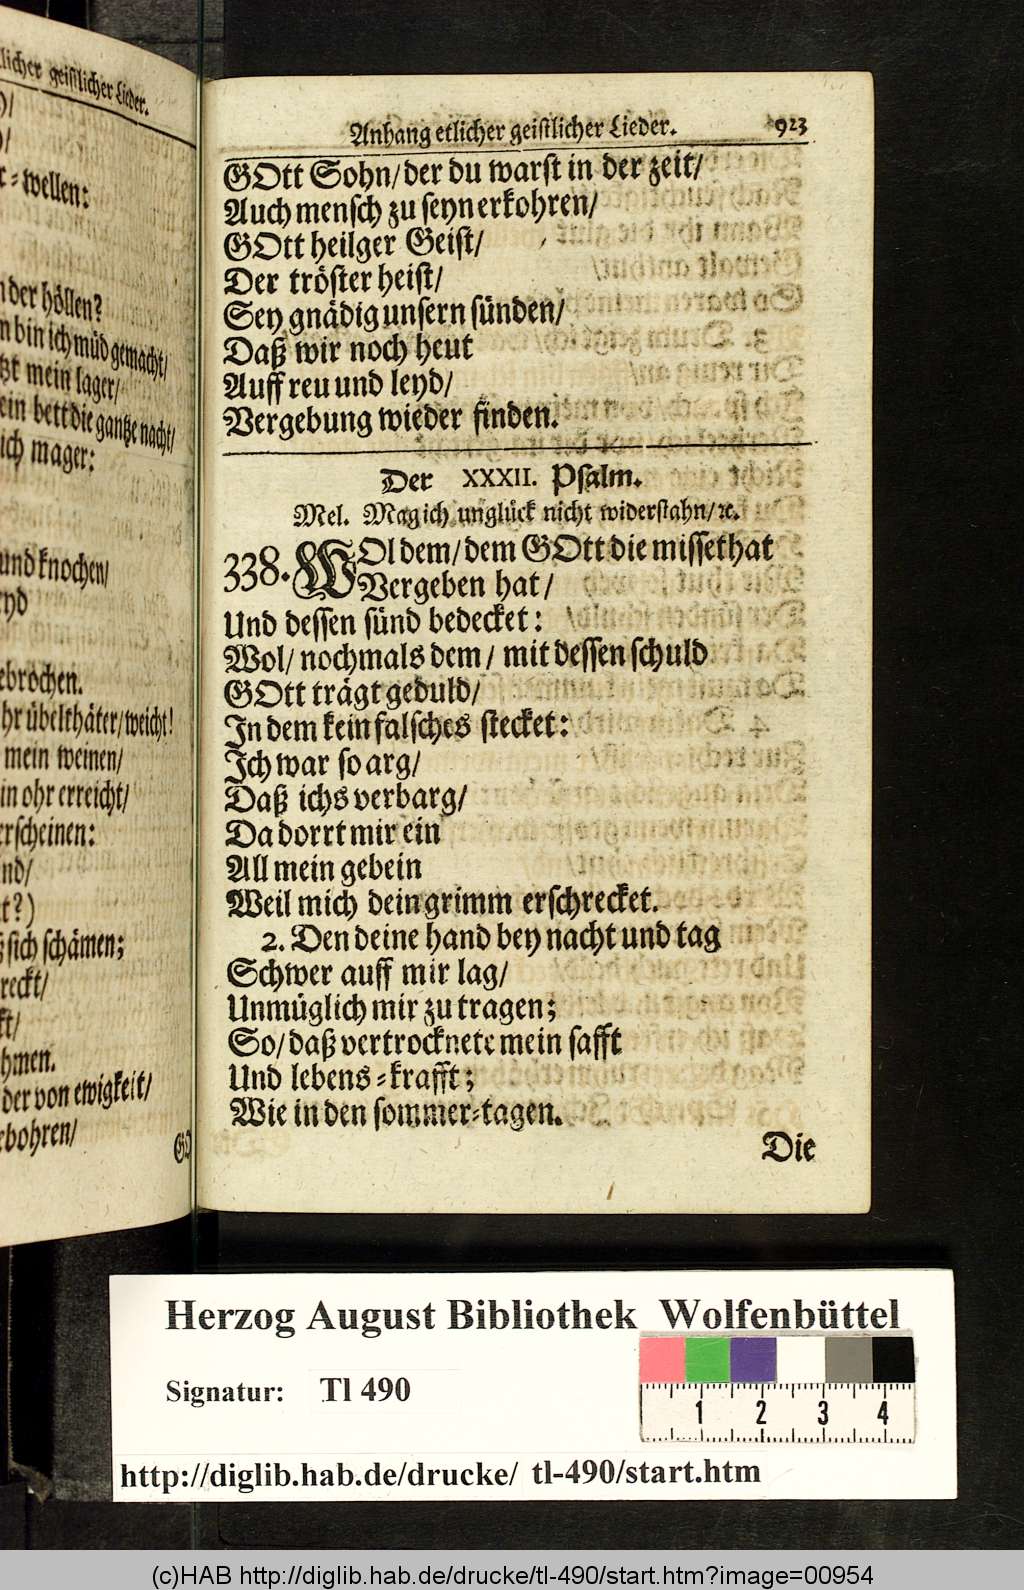 licher geistlicher Lieder.
)/
)/
r-wellen:
n der höllen?
n bin ich müd gemacht/
tzt mein lager/
ein bett die gantze nacht/
ich mager:
und knochen/
eyd
ebrochen.
hr übelthäter/weicht!
mein weinen/
in ohr erreicht/
erscheinen:
nd/
t?)
ß sich schämen;
reckt/
kt/
hmen.
der von ewigkeit/
ebohren/
GO
Anhang etlicher geistlicher Lieder. 923
GOtt Sohn/der du warst in der zeit/
Auch mensch zu seyn erkohren/
GOtt heilger Geist/
Der tröster heist/
Sey gnädig unsern sünden/
Daß wir noch heut
Auff reu und leyd/
Vergebung wieder finden.
Der XXXII. Psalm.
Mel. Mag ich unglück nicht widerstahn/ꝛc.
338. WOl dem/dem GOtt die missethat
Vergeben hat/
Und dessen sünd bedecket:
Wol/nochmals dem/mit dessen schuld
GOtt trägt geduld/
In dem kein falsches stecket:
Ich war so arg/
Daß ichs verbarg/
Da dorrt mir ein
All mein gebein
Weil mich dein grimm erschrecket.
2. Den deine hand bey nacht und tag
Schwer auff mir lag/
Unmüglich mir zu tragen;
So/daß vertrocknete mein safft
Und lebens-krafft;
Wie in den sommer-tagen.
Die
Herzog August Bibliothek Wolfenbüttel
Signatur: Tl 490
1 2 3 4
http://diglib.hab.de/drucke/ tl-490/start.htm
(c)HAB http://diglib.hab.de/drucke/tl-490/start.htm?image=00954